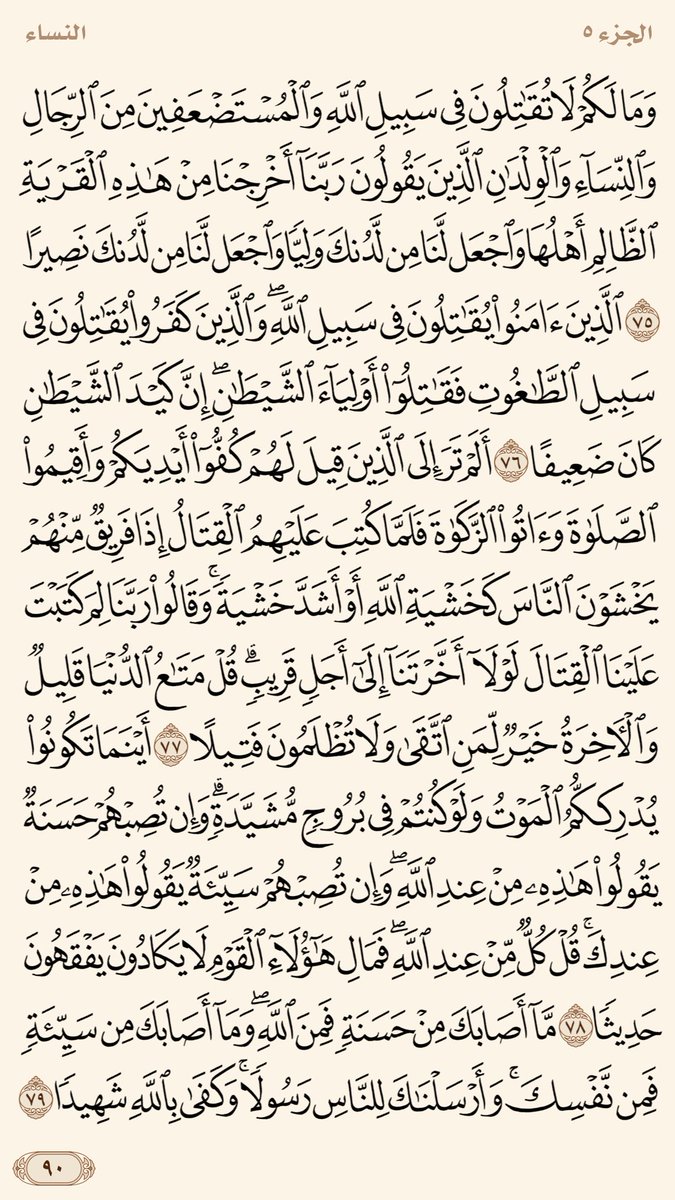 الجزء ٥
النساء
وَمَا لَكُمۡ لَا تُقَٰتِلُونَ فِي سَبِيلِ ٱللَّهِ وَٱلۡمُسۡتَضۡعَفِينَ مِنَ ٱلرِّجَالِ
وَٱلنِّسَآءِ وَٱلۡوِلۡدَٰنِ ٱلَّذِينَ يَقُولُونَ رَبَّنَآ أَخۡرِجۡنَا مِنۡ هَٰذِهِ ٱلۡقَرۡيَةِ
ٱلظَّالِمِ أَهۡلُهَا وَٱجۡعَل لَّنَا مِن لَّدُنكَ وَلِيّٗا وَٱجۡعَل لَّنَا مِن لَّدُنكَ نَصِيرًا
٧٥ ٱلَّذِينَ ءَامَنُواْ يُقَٰتِلُونَ فِي سَبِيلِ ٱللَّهِۖ وَٱلَّذِينَ كَفَرُواْ يُقَٰتِلُونَ فِي
سَبِيلِ ٱلطَّٰغُوتِ فَقَٰتِلُوٓاْ أَوۡلِيَآءَ ٱلشَّيۡطَٰنِۖ إِنَّ كَيۡدَ ٱلشَّيۡطَٰنِ
كَانَ ضَعِيفًا ٧٦ أَلَمۡ تَرَ إِلَى ٱلَّذِينَ قِيلَ لَهُمۡ كُفُّوٓاْ أَيۡدِيَكُمۡ وَأَقِيمُواْ
ٱلصَّلَوٰةَ وَءَاتُواْ ٱلزَّكَوٰةَ فَلَمَّا كُتِبَ عَلَيۡهِمُ ٱلۡقِتَالُ إِذَا فَرِيقٞ مِّنۡهُمۡ
يَخۡشَوۡنَ ٱلنَّاسَ كَخَشۡيَةِ ٱللَّهِ أَوۡ أَشَدَّ خَشۡيَةٗۚ وَقَالُواْ رَبَّنَا لِمَ كَتَبۡتَ
عَلَيۡنَا ٱلۡقِتَالَ لَوۡلَآ أَخَّرۡتَنَآ إِلَىٰٓ أَجَلٖ قَرِيبٖۗ قُلۡ مَتَٰعُ ٱلدُّنۡيَا قَلِيلٞ
وَٱلۡأٓخِرَةُ خَيۡرٞ لِّمَنِ ٱتَّقَىٰ وَلَا تُظۡلَمُونَ فَتِيلًا ٧٧ أَيۡنَمَا تَكُونُواْ
يُدۡرِككُّمُ ٱلۡمَوۡتُ وَلَوۡ كُنتُمۡ فِي بُرُوجٖ مُّشَيَّدَةٖۗ وَإِن تُصِبۡهُمۡ حَسَنَةٞ
يَقُولُواْ هَٰذِهِۦ مِنۡ عِندِ ٱللَّهِۖ وَإِن تُصِبۡهُمۡ سَيِّئَةٞ يَقُولُواْ هَٰذِهِۦ مِنۡ
عِندِكَۚ قُلۡ كُلّٞ مِّنۡ عِندِ ٱللَّهِۖ فَمَالِ هَٰٓؤُلَآءِ ٱلۡقَوۡمِ لَا يَكَادُونَ يَفۡقَهُونَ
حَدِيثٗا ٧٨ مَّآ أَصَابَكَ مِنۡ حَسَنَةٖ فَمِنَ ٱللَّهِۖ وَمَآ أَصَابَكَ مِن سَيِّئَةٖ
فَمِن نَّفۡسِكَۚ وَأَرۡسَلۡنَٰكَ لِلنَّاسِ رَسُولٗاۚ وَكَفَىٰ بِٱللَّهِ شَهِيدٗا ٧٩
٩٠